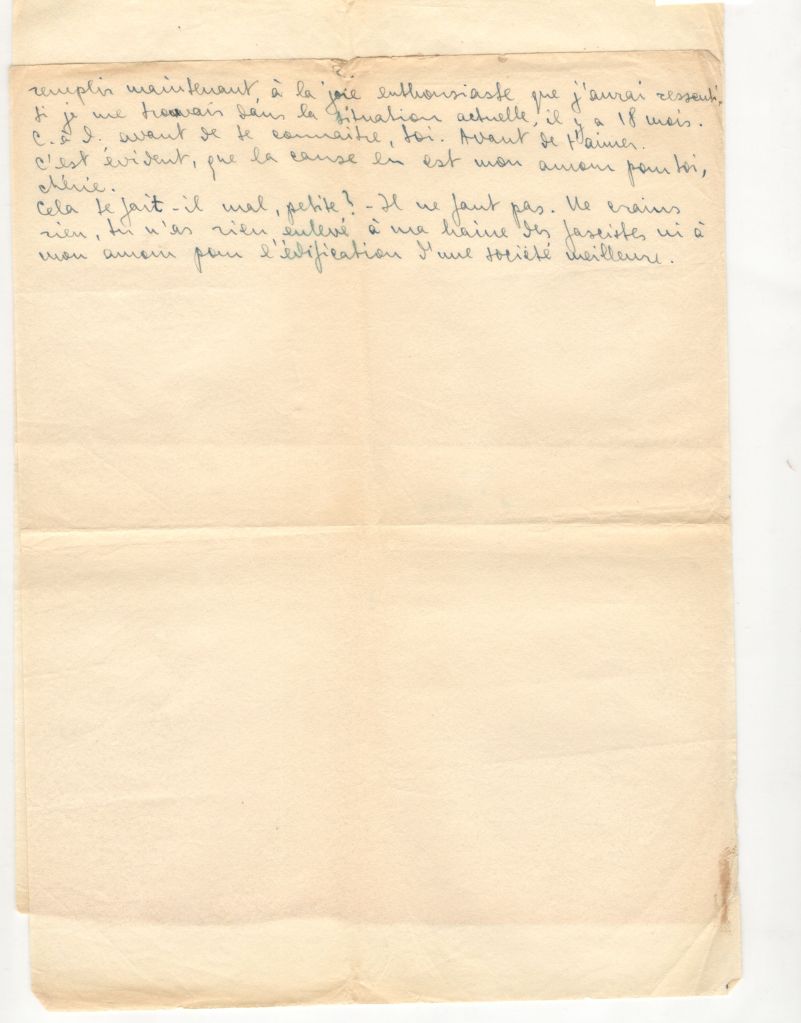 remplis maintenant, à la joie enthousiaste que j'aurai ressenti,
si je me trouvais dans la situation actuelle, il y a 18 mois.
C. à d. avant de te connaitre, toi. Avant de t'aimer.
C'est évident, que la cause en est mon amour pour toi,
chérie.
Cela te fait-il mal, petite? - Il ne faut pas. Ne crains
rien, tu n'as rien enlevé à ma haine des fascistes ni à
mon amour pour l'édification d'une société meilleure.